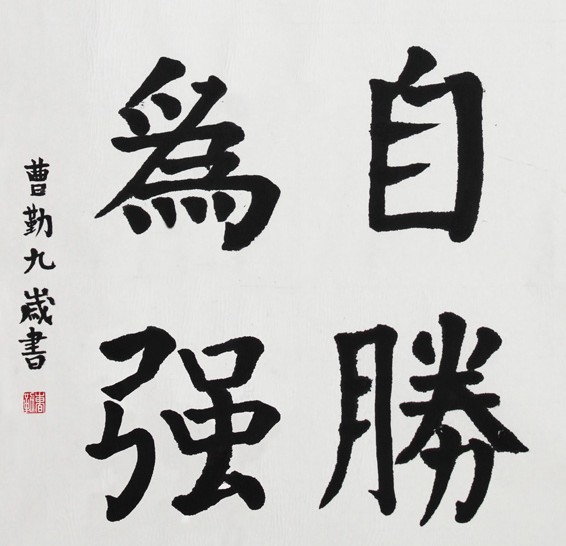 自勝
為强
曹勤九歲書